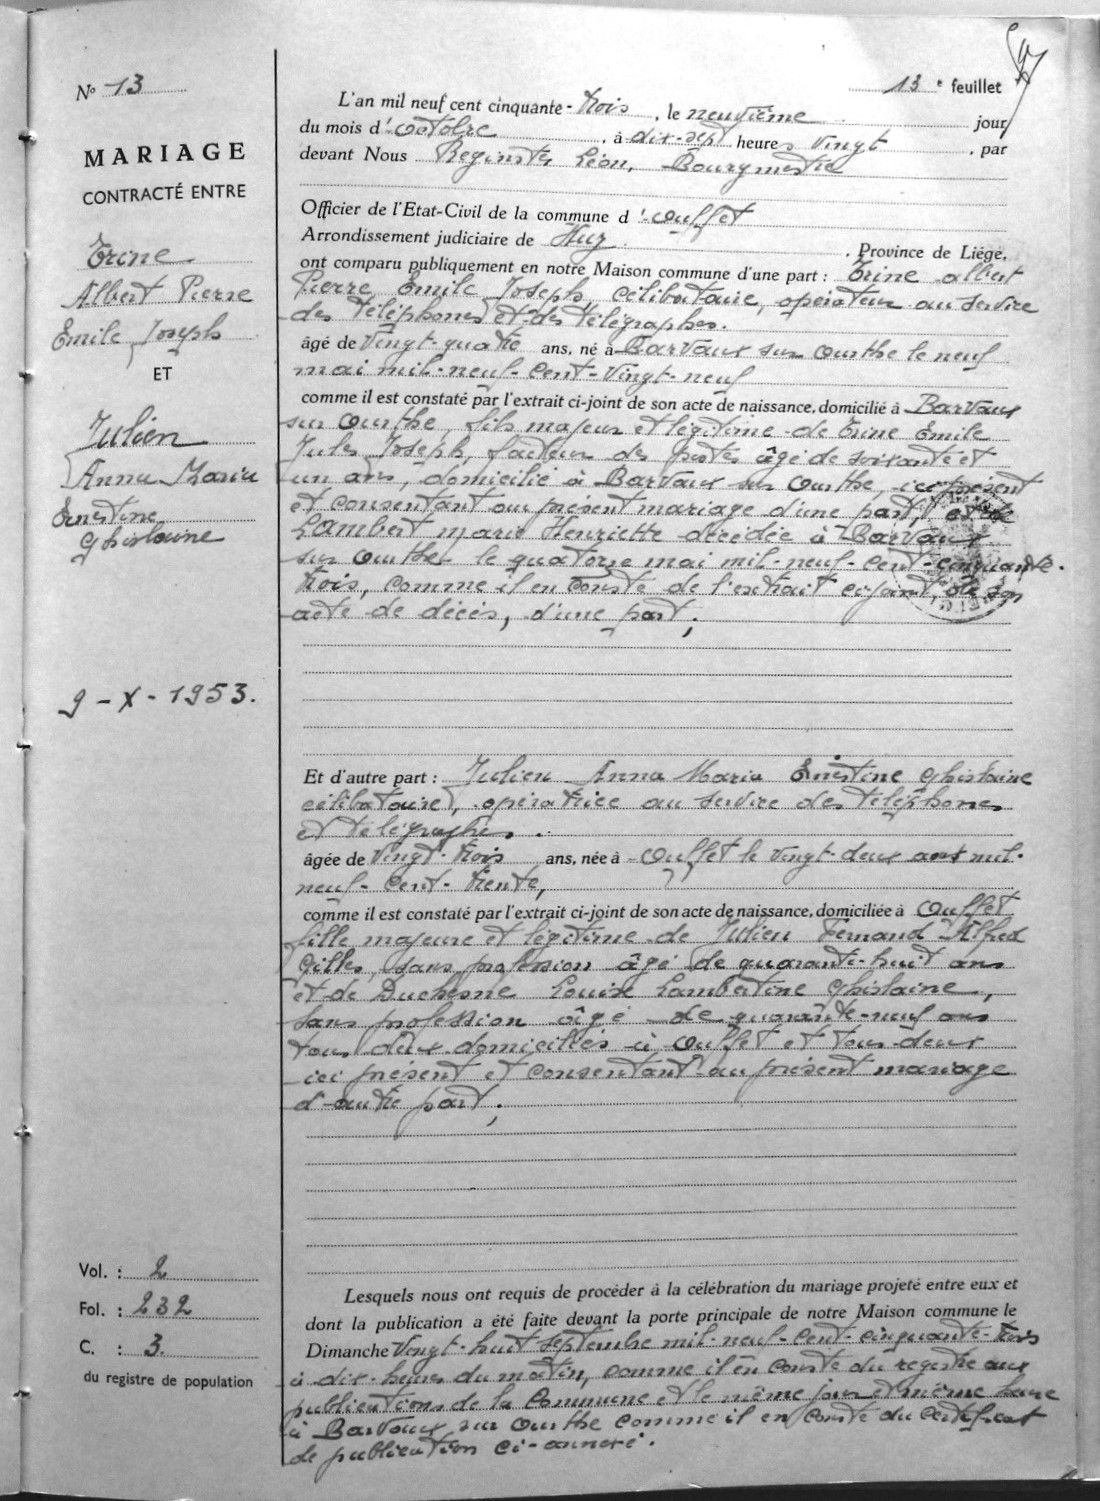 No 13
MARIAGE
CONTRACTÉ ENTRE
Trine
Albert Pierre
Emile Joseph
ET
Julien
Anna Maria
Ernestine
Ghislaine
9 - X - 1953.
Vol. : 2
Fol. : 232
C. : 3.
du registre de population
13 e feuillet
L'an mil neuf cent cinquante-trois, le neuvième jour
du mois d'octobre, à dix-sept heures vingt, par
devant Nous Léon, Bourgmestre
Officier de l'Etat-Civil de la commune d'Ouffet
Arrondissement judiciaire de Huy. Province de Liége,
ont comparu publiquement en notre Maison commune d'une part : Trine Albert
Pierre Emile Joseph, célibataire, opérateur au service
des téléphones et des télégraphes.
âgé de vingt-quatre ans, né à Barvaux sur Ourthe le neuf
mai mil-neuf-cent-vingt-neuf
comme il est constaté par l'extrait ci-joint de son acte de naissance, domicilié à Barvaux
sur Ourthe, fils majeur et légitime de Trine Emile
Jules Joseph, facteur des postes âgé de soixante et
un ans, domicilié à Barvaux sur Ourthe, ici présent
et consentant au présent mariage d'une part, et de
Lambert Marie Henriette décédée à Barvaux
sur Ourthe le quatorze mai mil-neuf-cent-cinquante-
trois, comme il en conste de l'extrait ci-joint de son
acte de décès, d'une part;
Et d'autre part : Julien Anna Maria Ernestine Ghislaine
célibataire, opératrice au service des téléphones
et télégraphes.
âgée de vingt-trois ans, née à Ouffet le vingt-deux août mil-
neuf-cent-trente,
comme il est constaté par l'extrait ci-joint de son acte de naissance, domiciliée à Ouffet
fille majeure et légitime de Julien Fernand Alfred
Gilles, sans profession âgé de quarante-huit ans
et de Duchesne Louise Lambertine Ghislaine,
sans profession âgé de quarante-neuf ans
tous deux domiciliés à Ouffet et tous deux
ici présent et consentant au présent mariage
d'autre part;
Lesquels nous ont requis de procéder à la célébration du mariage projeté entre eux et
dont la publication a été faite devant la porte principale de notre Maison commune le
Dimanche vingt-huit septembre mil-neuf-cent-cinquante-trois
à dix heures du matin, comme il en conste du registre aux
publications de la commune et le même jour et même heure
à Barvaux sur Ourthe comme il en conste du certificat
de publication ci-annexé.